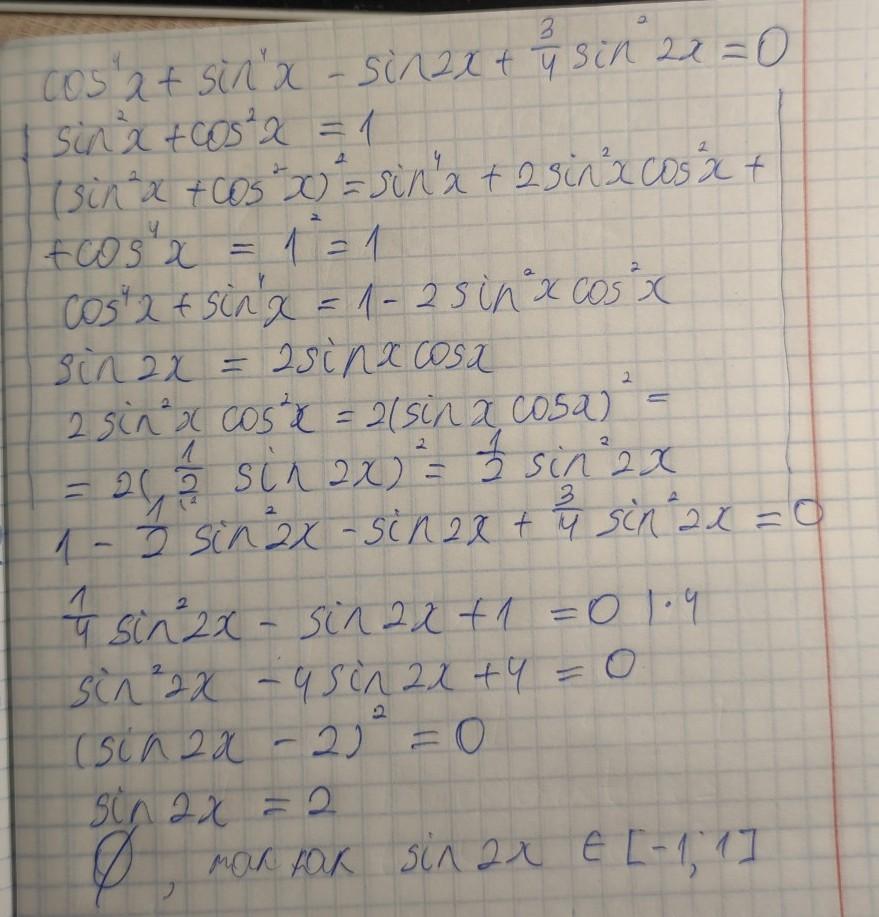 cos⁴x + sin⁴x - sin2x + 3/4 sin²2x = 0
sin²x + cos²x = 1
(sin²x + cos²x)² = sin⁴x + 2sin²x cos²x +
+cos⁴x = 1² = 1
cos⁴x + sin⁴x = 1 - 2sin²x cos²x
sin2x = 2sinx cosx
2sin²x cos²x = 2(sinx cosx)² =
= 2(1/2 sin2x)² = 1/2 sin²2x
1 - 1/2 sin²2x - sin2x + 3/4 sin²2x = 0
1/4 sin²2x - sin2x + 1 = 0 |·4
sin²2x - 4sin2x + 4 = 0
(sin2x - 2)² = 0
sin2x = 2
∅, так как sin2x ∈ [-1; 1]